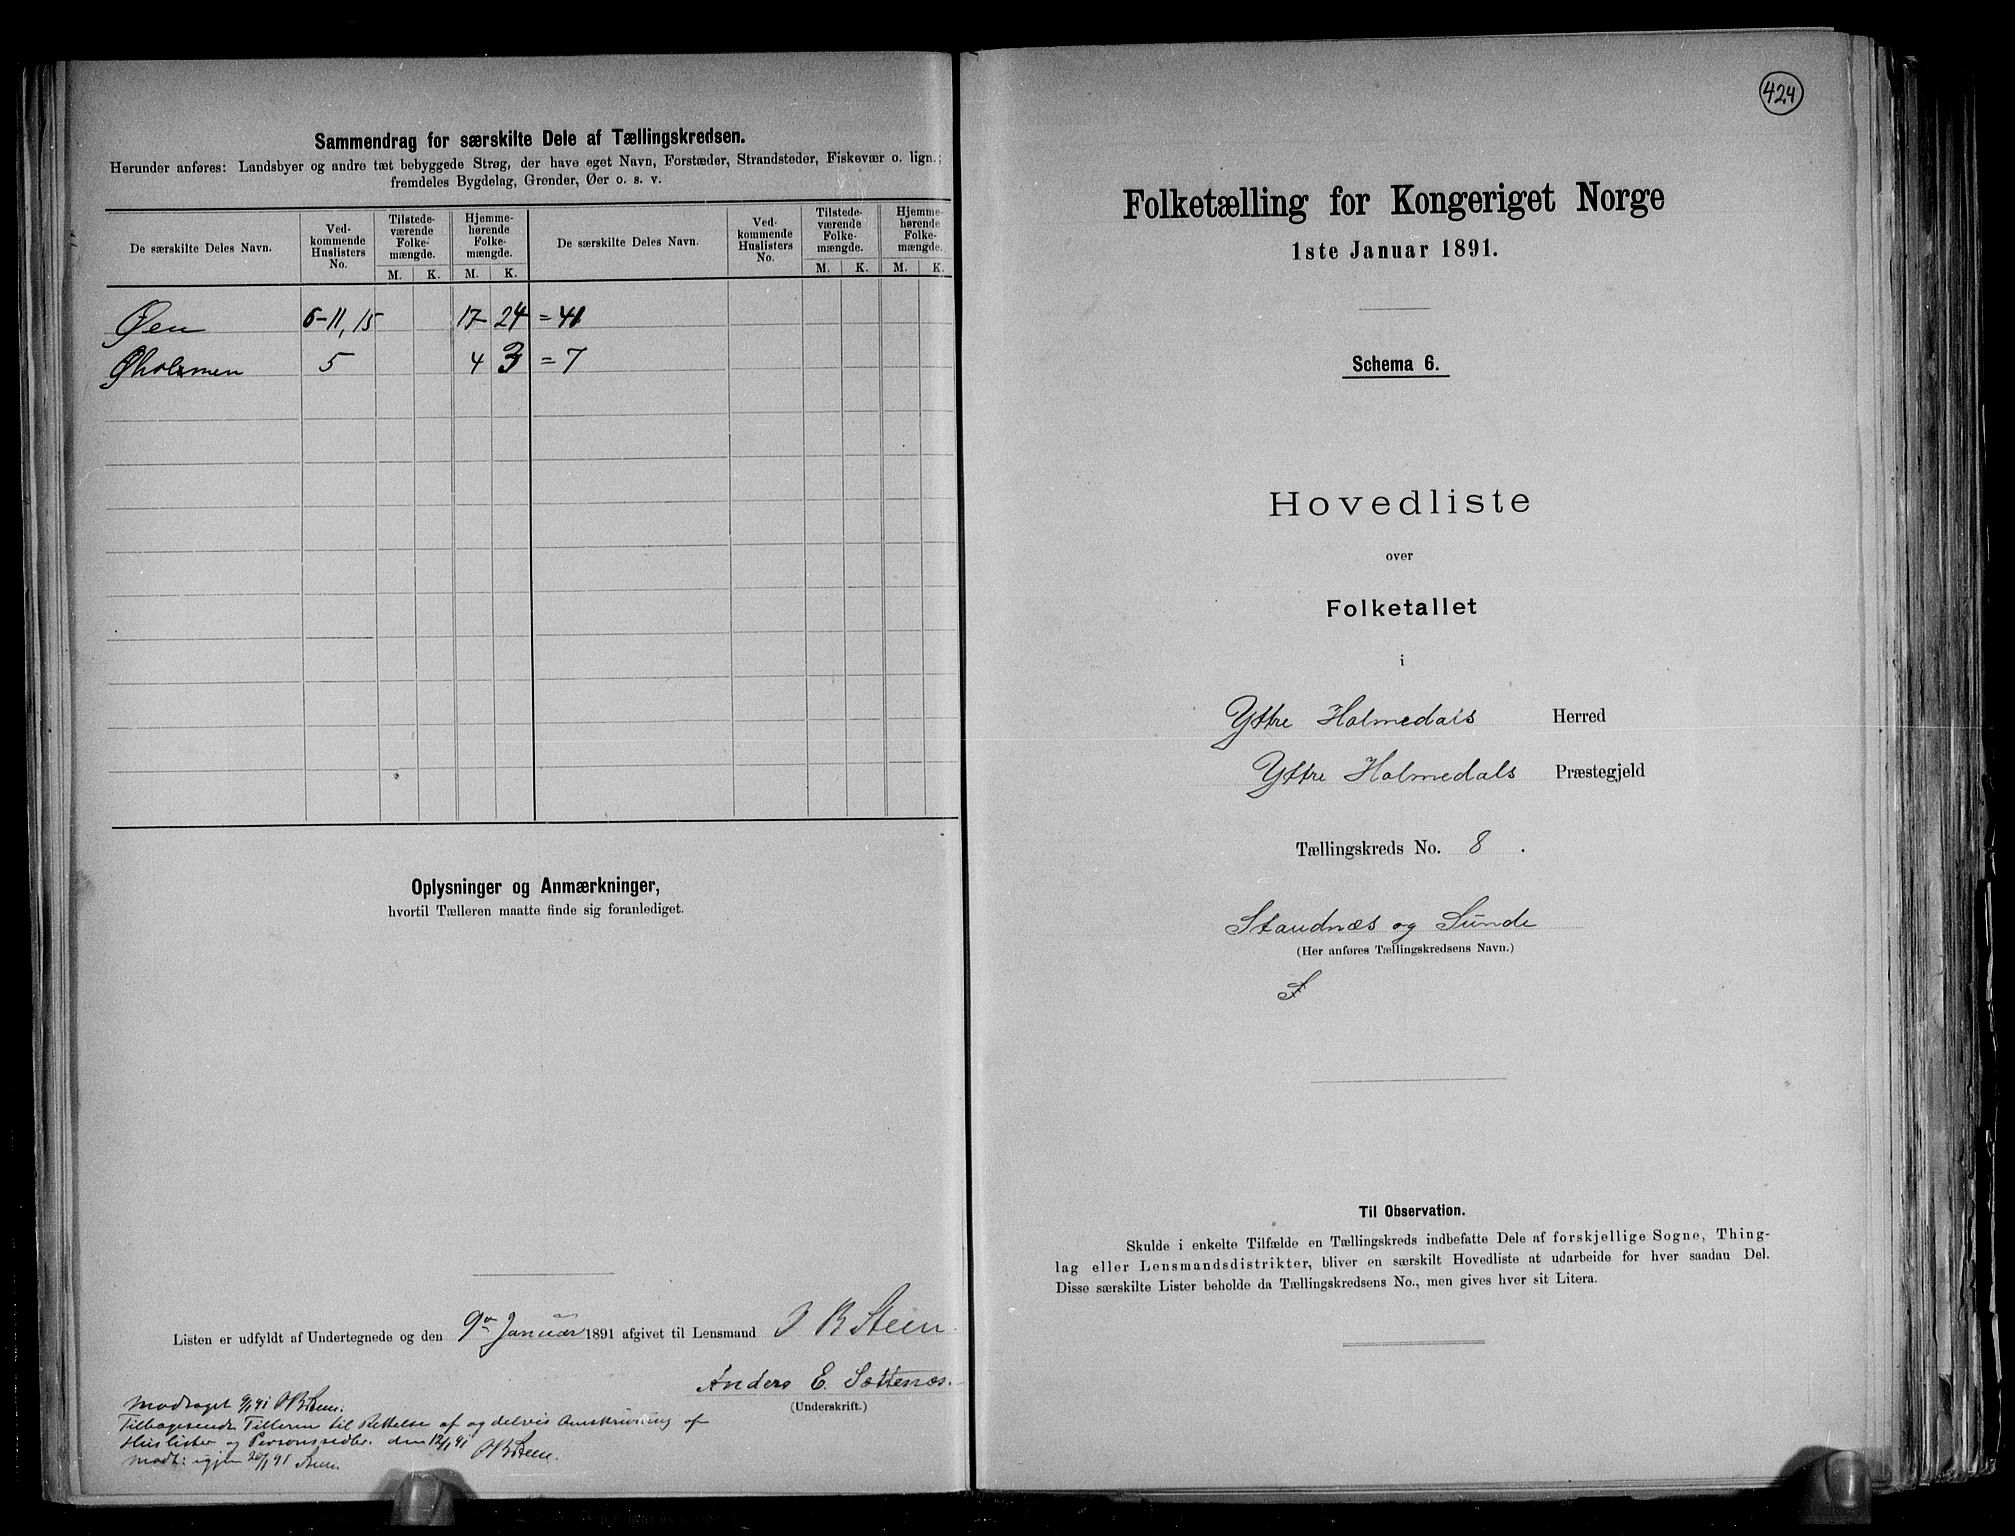 Sammendrag for særskilte Dele af Tællingskredsen.
Herunder anføres: Landsbyer og andre tæt bebyggede Strøg, der have eget Navn, Forstæder, Strandsteder, Fiskevær o. lign.;
fremdeles Bygdelag, Grender, Øer o. s. v.
De særskilte Deles Navn. Ved-kommende Huslisters No. Tilstede-værende Folke-mængde. M. K. Hjemme-hørende Folke-mængde. M. K. De særskilte Deles Navn. Ved-kommende Huslisters No. Tilstede-værende Folke-mængde. M. K. Hjemme-hørende Folke-mængde. M. K.
Øen 6-11, 15 17 24 = 41
Øholmen 5 4 3 = 7
Oplysninger og Anmærkninger,
hvortil Tælleren maatte finde sig foranlediget.
Listen er udfyldt af Undertegnede og den 9de Januar 1891 afgivet til Lensmand J R Steen.
Anders E. Sættenæs.
(Underskrift.)
Modtaget 9/1 91
Tilbagesendt Tælleren til Rettelse af og delvis Omskrivning af
Huslister og Personsedler. den 12/1 91
Modt: igjen 20/1 91 Steen.
424
Folketælling for Kongeriget Norge
1ste Januar 1891.
Schema 6.
Hovedliste
over
Folketallet
i
Yttre Holmedals Herred
Yttre Holmedals Præstegjeld
Tællingskreds No. 8.
Standnæs og Sunde
(Her anføres Tællingskredsens Navn.)
S
Til Observation.
Skulde i enkelte Tilfælde en Tællingskreds indbefatte Dele af forskjellige Sogne, Thing-
lag eller Lensmandsdistrikter, bliver en særskilt Hovedliste at udarbeide for hver saadan Del.
Disse særskilte Lister beholde da Tællingskredsens No., men gives hver sit Litera.